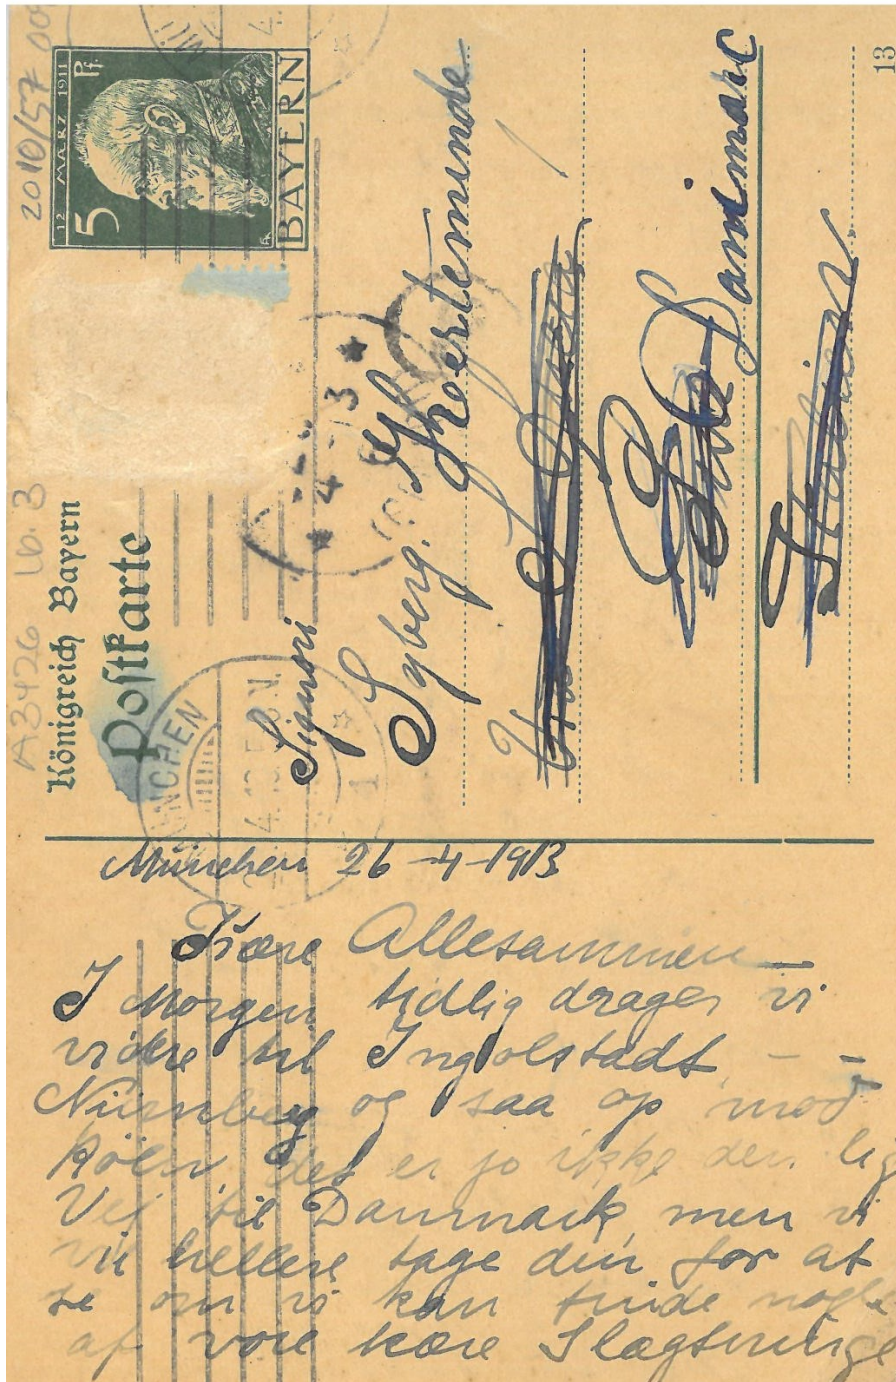 2010/57
A3426 lb. 3
12 MÄRZ 1911
5 Pf.
BAYERN
Königreich Bayern
Postkarte
MÜNCHEN
Signori
Syberg. Kjerteminde
Danmark
13
München 26-4-1913
Kære Allesammen
I Morgen tidlig drager vi
videre til Ingolstadt - -
Nürnberg og saa op mod
Köln, det er jo ikke den lig
Vej til Danmark men vi
vil hellere tage din for at
se om vi kan finde nogle
af vore kære Slægtninge